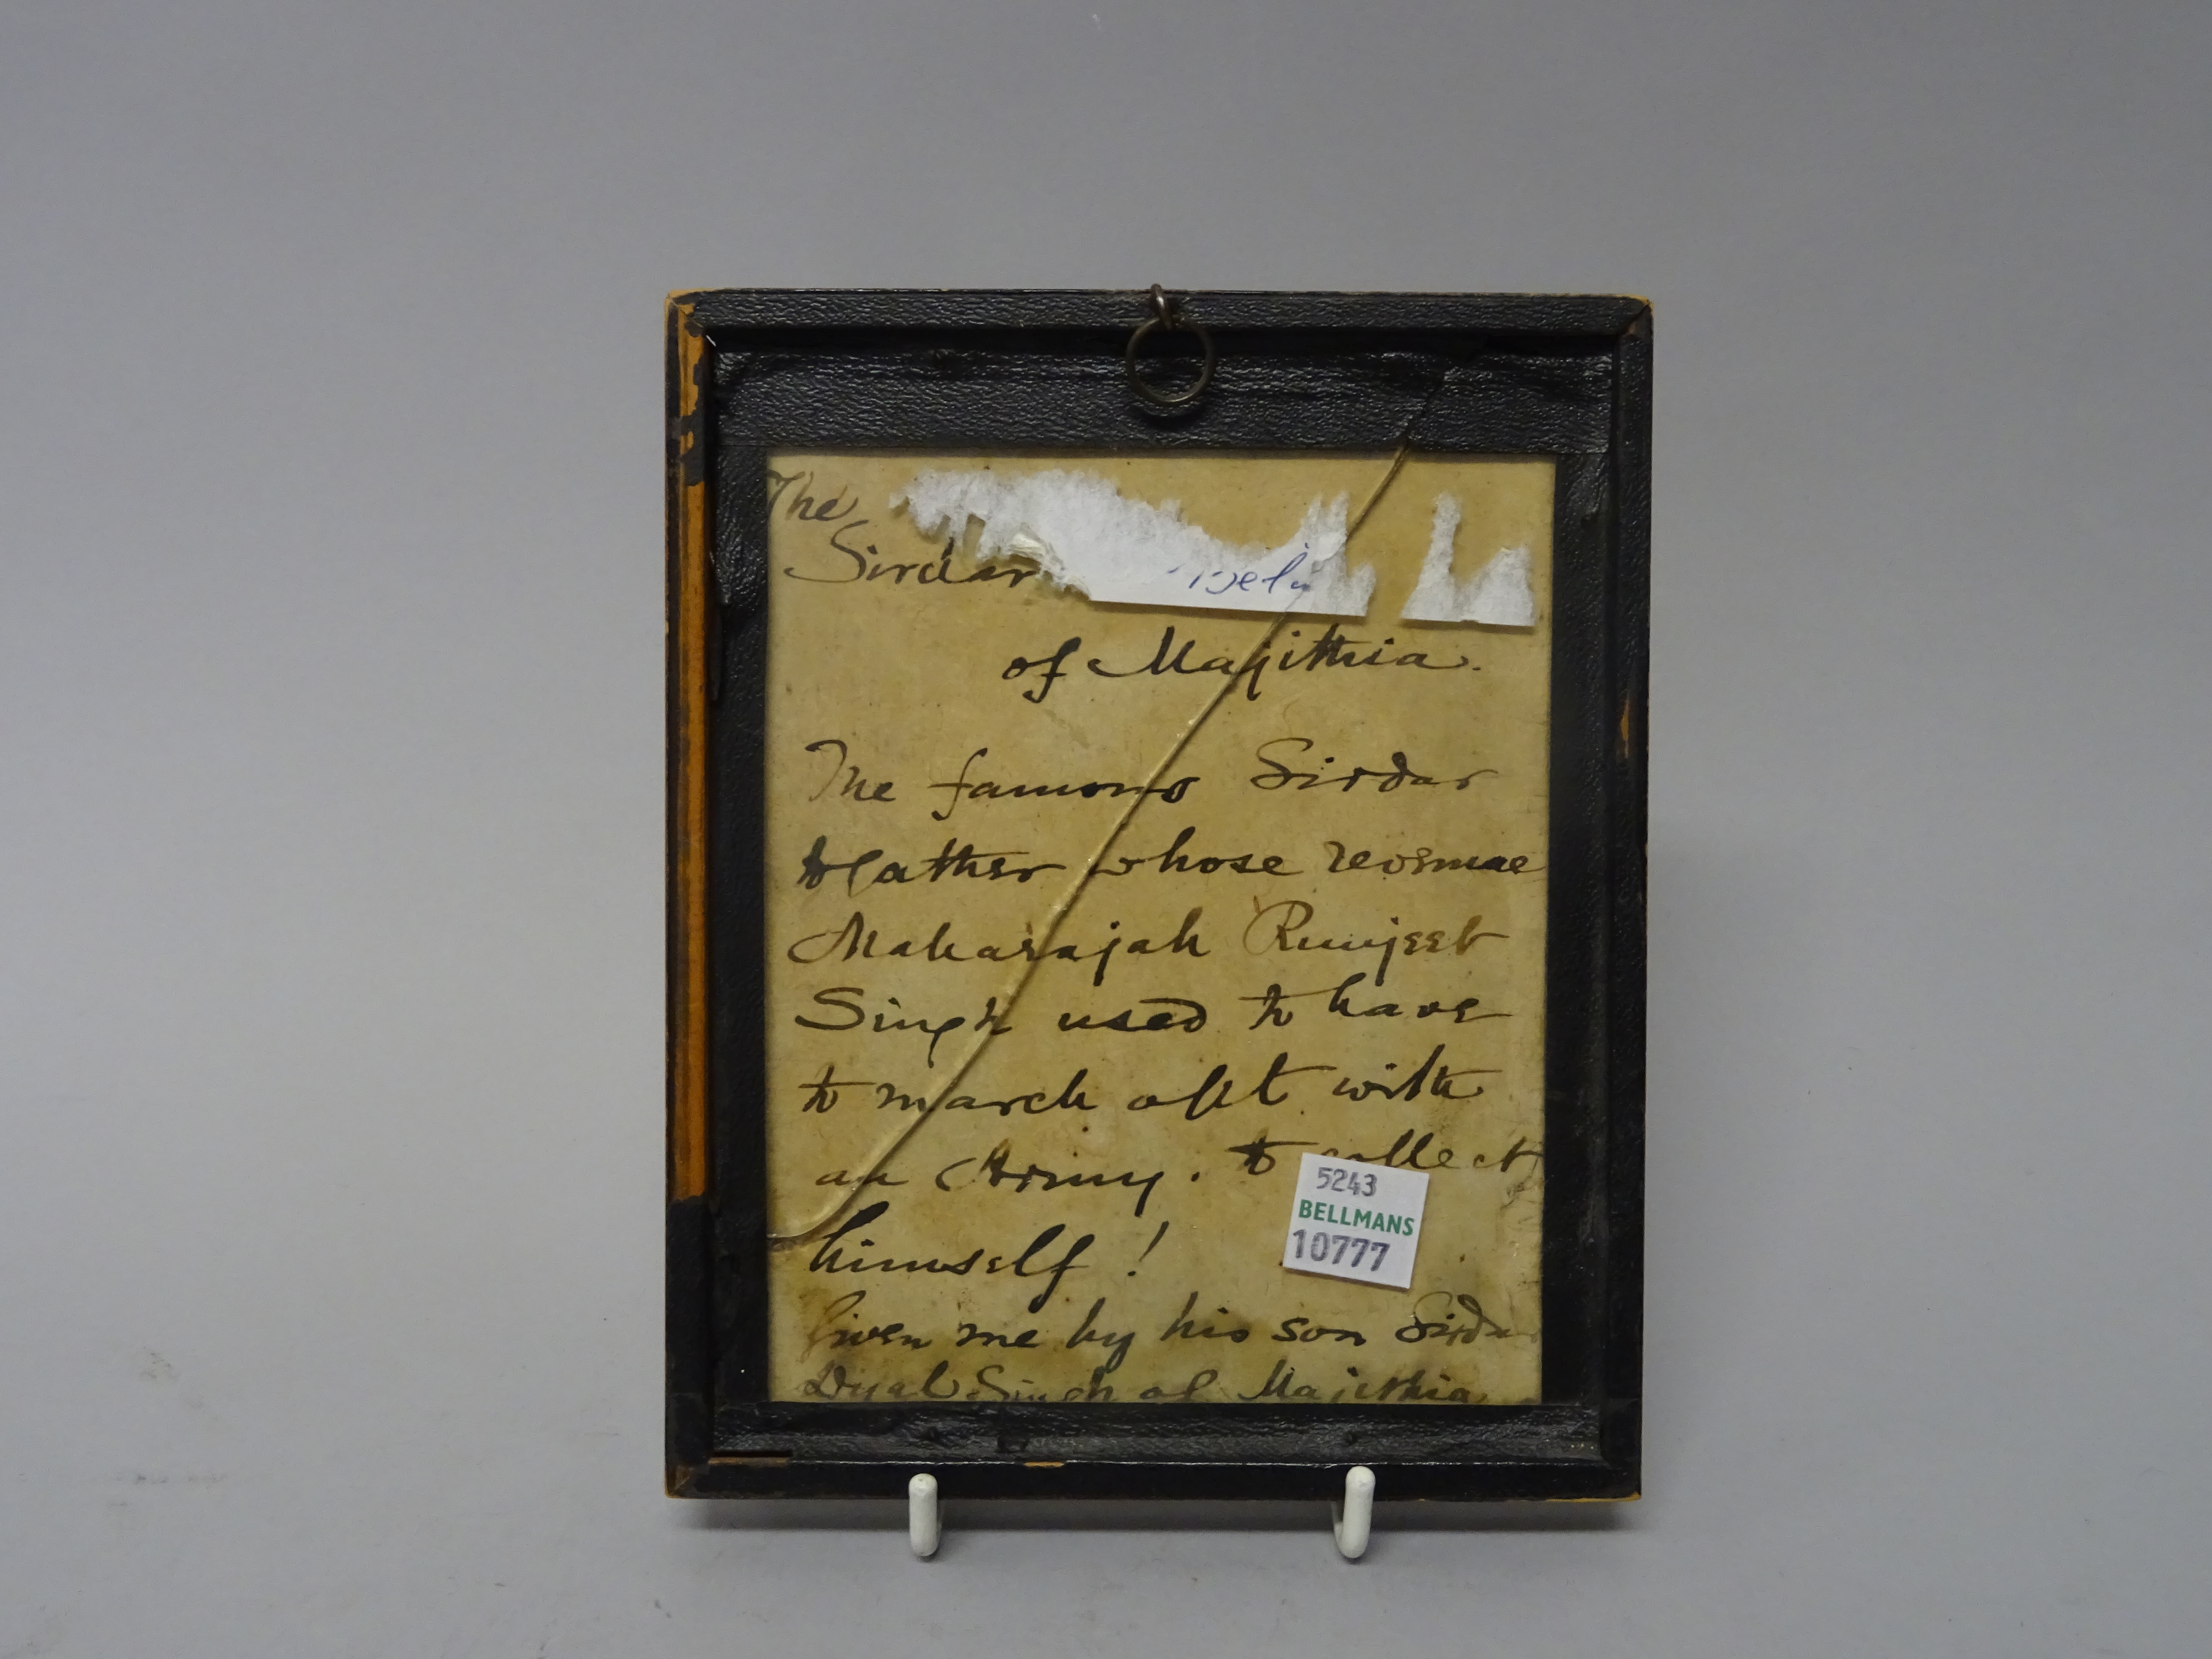 The
Sirdar
of Majithia.
The famous Sirdar
father whose revenue
Maharajah Runjeet
Singh used to have
to march with
an Army. to collect
himself!
Given me by his son Sirda
Dyal Singh of Majithia
5243
BELLMANS
10777